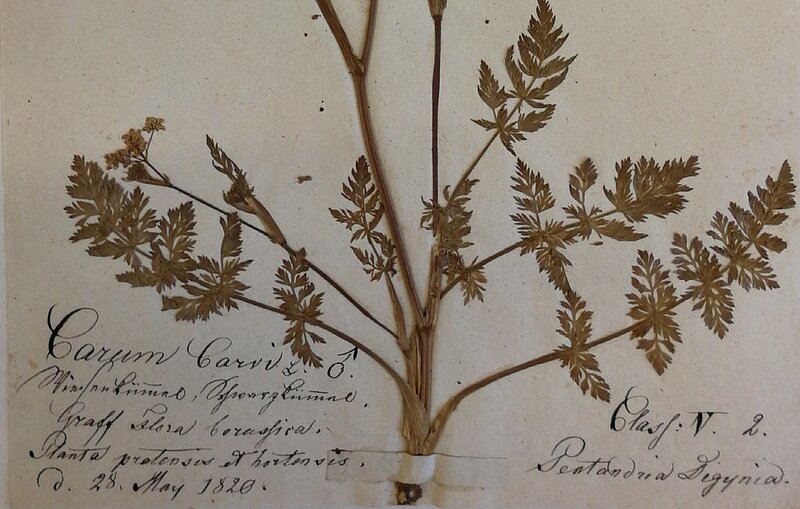 Carum Carvi L. ♂.
Wiesenkümmel, Schwarzkümmel.
Graff Flora borussica.
Planta pratensis et hortensis.
d. 28. May 1820.
Class: V. 2.
Pentandria Digynia.